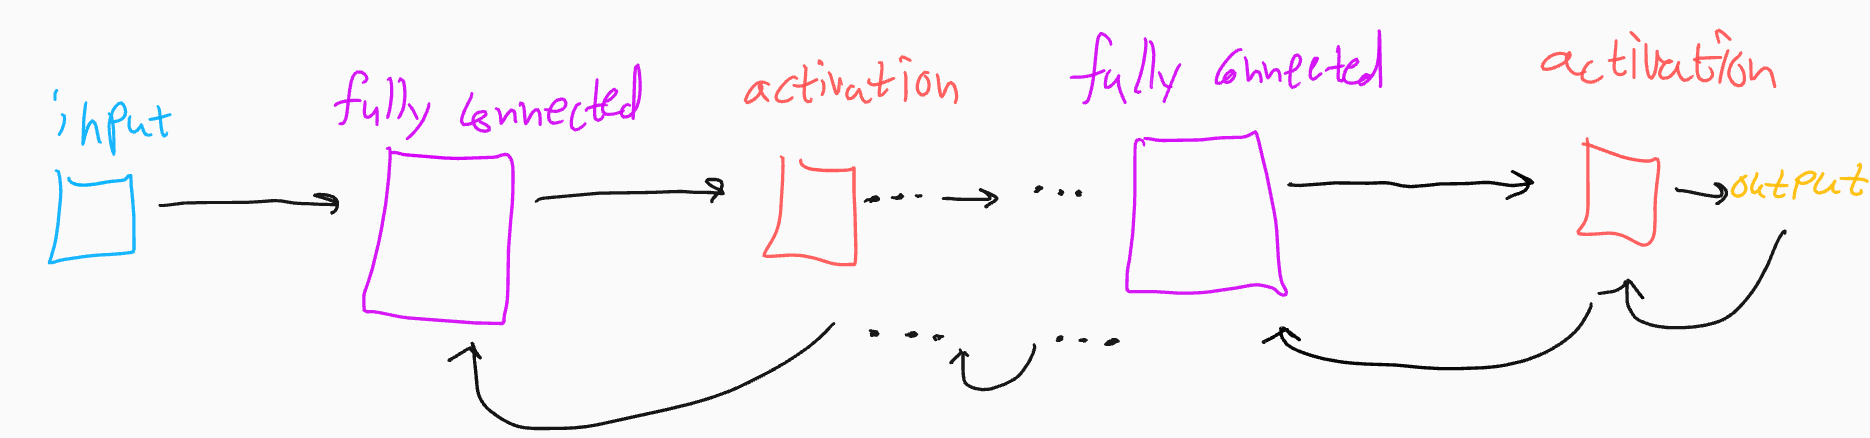 input
fully connected
activation
... 
...
fully connected
activation
output
... 
...